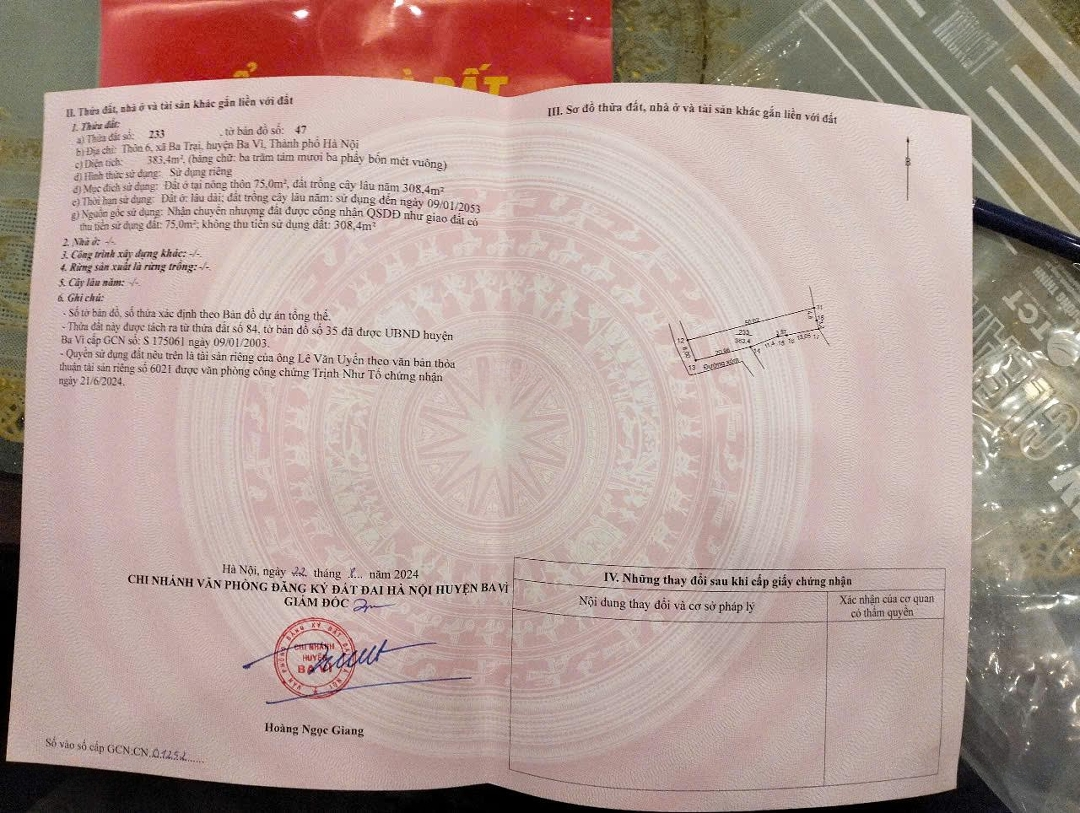 ĐẤT
II. Thửa đất, nhà ở và tài sản khác gắn liền với đất
1. Thửa đất:
a) Thửa đất số: 233 , tờ bản đồ số: 47
b) Địa chỉ: Thôn 6, xã Ba Trại, huyện Ba Vì, Thành phố Hà Nội
c) Diện tích: 383,4m², (bằng chữ: ba trăm tám mươi ba phẩy bốn mét vuông)
d) Hình thức sử dụng: Sử dụng riêng
đ) Mục đích sử dụng: Đất ở tại nông thôn 75,0m², đất trồng cây lâu năm 308,4m²
e) Thời hạn sử dụng: Đất ở: lâu dài; đất trồng cây lâu năm: sử dụng đến ngày 09/01/2053
g) Nguồn gốc sử dụng: Nhận chuyển nhượng đất được công nhận QSDĐ như giao đất có
thu tiền sử dụng đất: 75,0m²; không thu tiền sử dụng đất: 308,4m²
2. Nhà ở: -/-.
3. Công trình xây dựng khác: -/-.
4. Rừng sản xuất là rừng trồng: -/-.
5. Cây lâu năm: -/-.
6. Ghi chú:
- Số tờ bản đồ, số thửa xác định theo Bản đồ dự án tổng thể.
- Thửa đất này được tách ra từ thửa đất số 84, tờ bản đồ số 35 đã được UBND huyện
Ba Vì cấp GCN số: S 175061 ngày 09/01/2003.
- Quyền sử dụng đất nêu trên là tài sản riêng của ông Lê Văn Uyển theo văn bản thỏa
thuận tài sản riêng số 6021 được văn phòng công chứng Trịnh Như Tố chứng nhận
ngày 21/6/2024.
Hà Nội, ngày 22 tháng 8 năm 2024
CHI NHÁNH VĂN PHÒNG ĐĂNG KÝ ĐẤT ĐAI HÀ NỘI HUYỆN BA VÌ
GIÁM ĐỐC
CHI NHÁNH
HUYỆN
BA VÌ
Hoàng Ngọc Giang
Số vào sổ cấp GCN:CN.01252
III. Sơ đồ thửa đất, nhà ở và tài sản khác gắn liền với đất
B
11
50.02
12
233
383,4
17
13
14
20.98
Đường xóm
IV. Những thay đổi sau khi cấp giấy chứng nhận
Nội dung thay đổi và cơ sở pháp lý
Xác nhận của cơ quan
có thẩm quyền